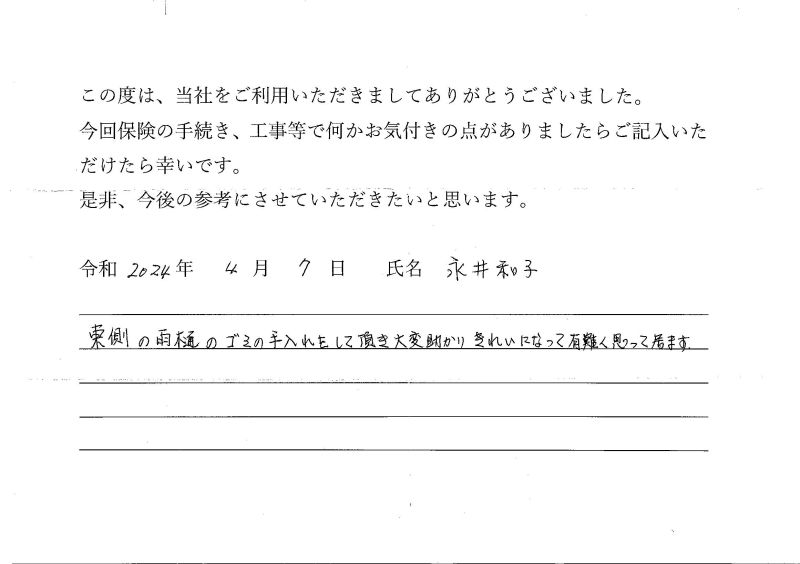 この度は、当社をご利用いただきましてありがとうございました。
今回保険の手続き、工事等で何かお気付きの点がありましたらご記入いた
だけたら幸いです。
是非、今後の参考にさせていただきたいと思います。
令和 2024 年 4 月 7 日 氏名 永井和子
東側の雨樋のゴミの手入れをして頂き大変助かりきれいになって有難く思って居ます